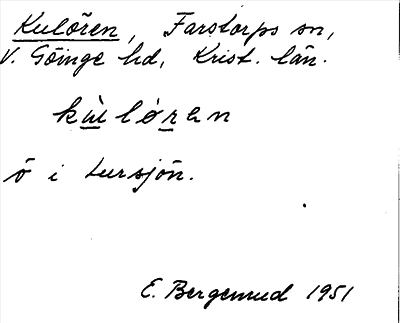 Kulören, Farstorps sn,
V. Göinge hd, Krist. län.
kùlören
ö i Lursjön.
E. Bergenrud 1951